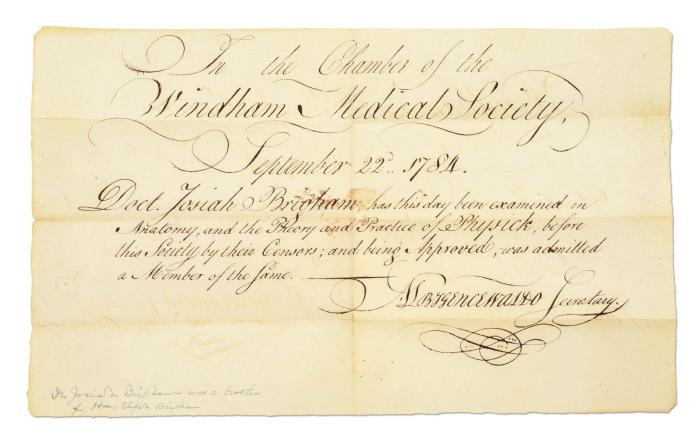 In the Chamber of the
Windham Medical Society,
September 22d. 1784.
Doct. Josiah Brigham, has this day been examined in
Anatomy, and the Theory and Practice of Physick, before
this Society by their Censors; and being Approved, was admitted
a Member of the Same.
ALBIGENCE WALDO Secretary.
Dr. Josiah Brigham was a brother
of Hon. Brigham